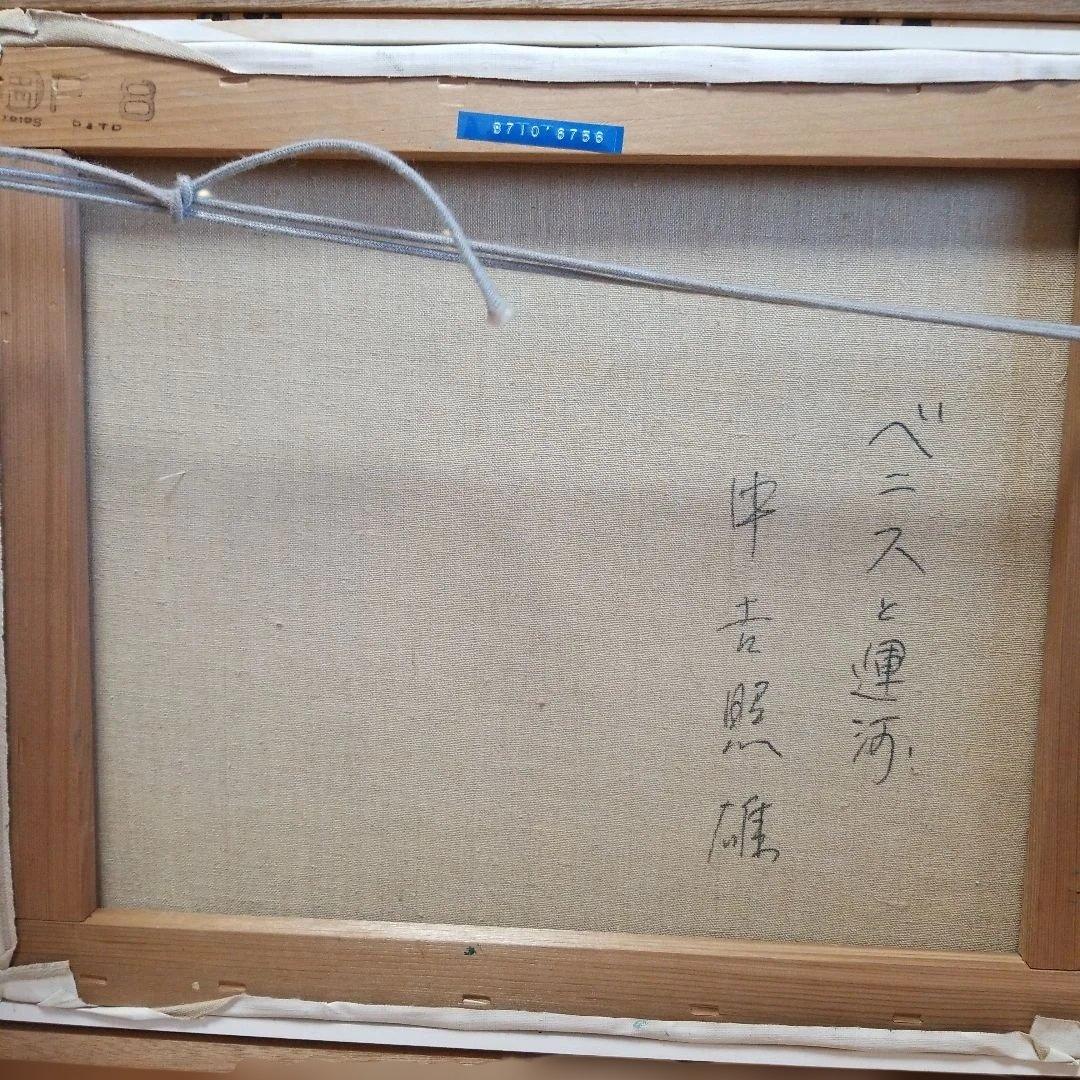 F 8
8710'6756
ベニスと運河
中吉照雄